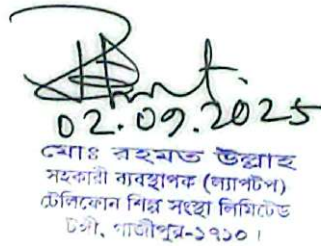 02.09.2025
মোঃ রহমত উল্লাহ
সহকারী ব্যবস্থাপক (ল্যাপটপ)
টেলিফোন শিল্প সংস্থা লিমিটেড
টঙ্গী, গাজীপুর-১৭১০।